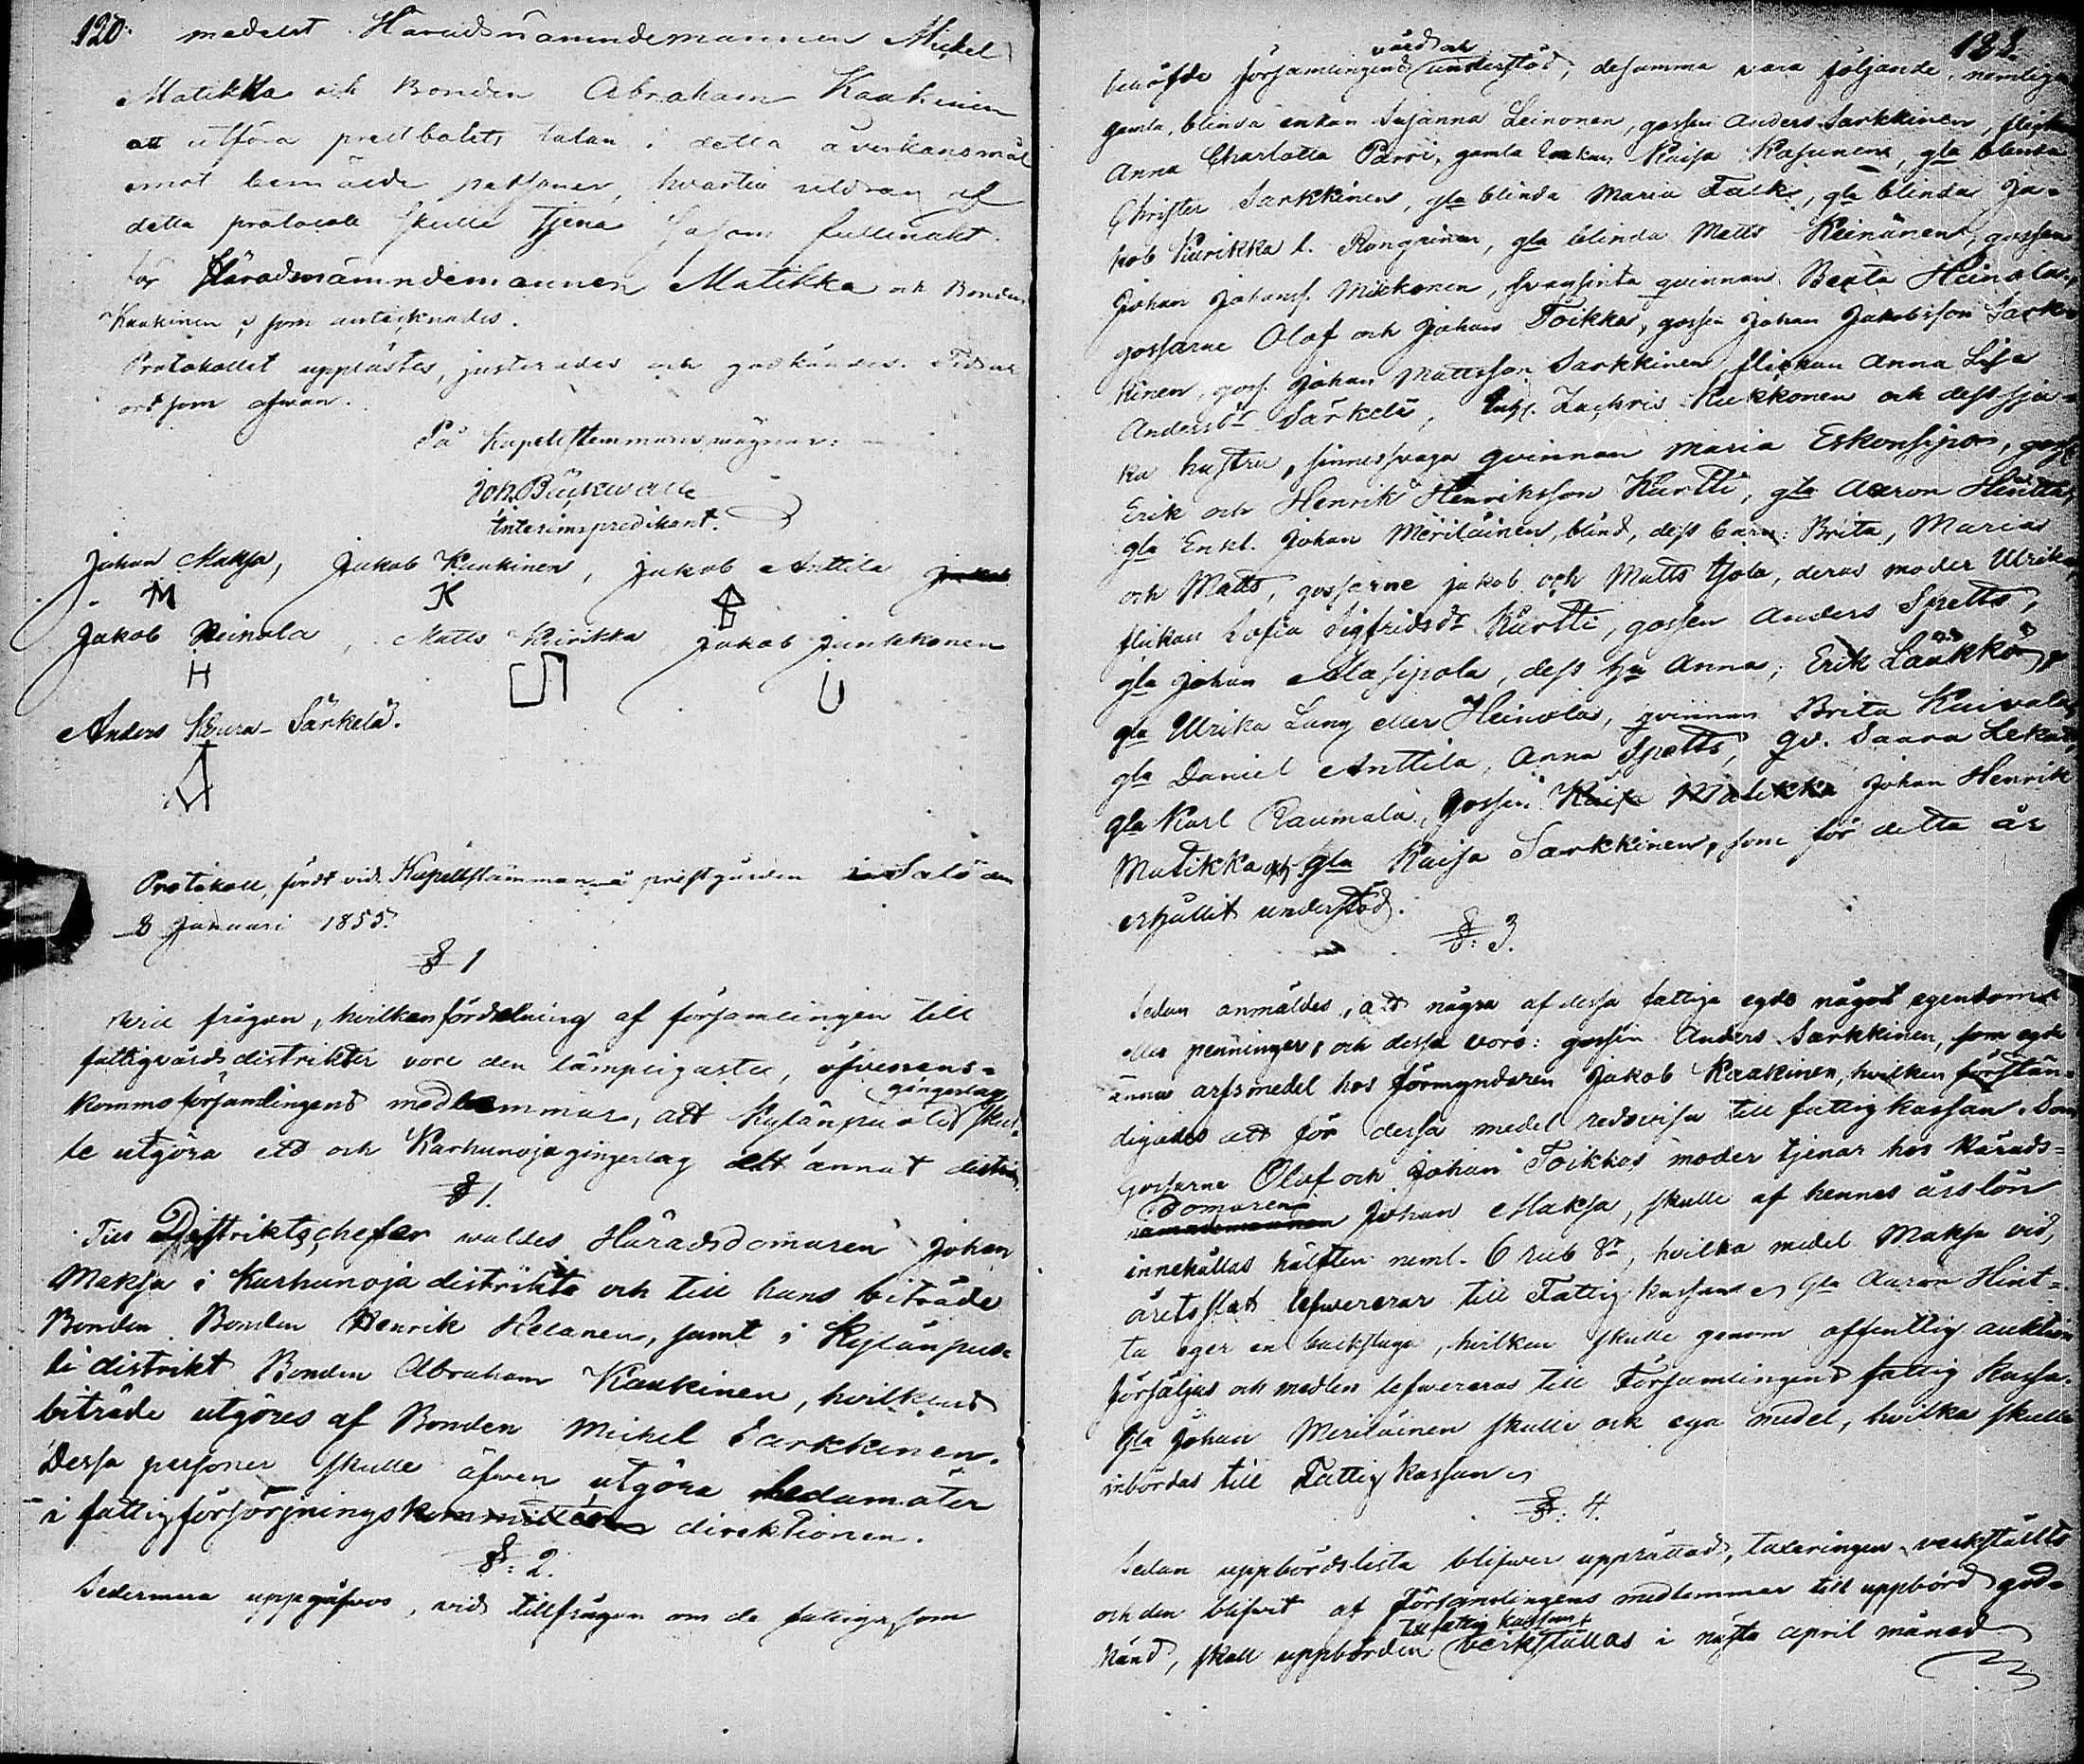 120.
medelst Häradsnämndemannen Mickel
Matikka och Bonden Abraham Kaakinen
att utföra prestbolets talan i detta åverkansmål
emot bemälde personer, hvartill utdrag af
detta protocoll skulle tjena såsom fullmakt
för Häradsnämndemannen Matikka och Bonden
Kaakinen; som antecknades.
Protokollet upplästes, justerades och godkändes. Tid och
ort som ofwan.
På Kapellstemmans wägnar:
Joh. Bäckwall
interimspredikant.
Johan Maksa, Jakob Kaakinen, Jakob Anttila Jakob
M K
Jakob Heinola, Matts Kurikka Jakob Junkkonen
H
Anders Keura-Särkelä.
Protokoll, fördt vid Kapellstämman å prestgården i Salo den
8 Januari 1855.
§ 1
Wid frågan, hvilken fördelning af församlingen till
fattigvårdsdistrikter vore den lämpligaste, öfverens-
gingerlag
kommo församlingens medlemmar, att Kylänpuoli skul-
le utgöra ett och Karhunoja gingerlag ett annat distrikt.
§ 1.
Till Distriktschefer waldes Häradsdomaren Johan
Maksa i Karhunoja distrikt och till hans biträde
Bonden Bonden Henrik Helanen, samt i Kylänpuo-
li distrikt Bonden Abraham Kaakinen, hvilkens
biträde utgöres af Bonden Mickel Sarkkinen.
Dessa personer skulle äfwen utgöra ledamöter
i fattigförsörjningskommittéen direktionen.
§: 2.
Sedermera uppgåfvos, vid tillfrågan om de fattiga, som
vård och
behöfde församlingens understöd, desamma vara följande, nemligen
gamla, blinda enkan Susanna Leinonen, gossen Anders Sarkkinen, flickan
Anna Charlotta Parri, gamla Enkan Kaisa Kasunen, gla blinda
Christer Sarkkinen, gla blinda Maria Falk, gla blinda Ja-
kob Kurikka l. Kangainen, gla blinda Matts Keinänen, gossen
Johan Johanss. Mickonen, svagsinta qvinnan Beata Heinola,
gossarne Olof och Johan Toikka, gossen Johan Jakobsson Sark-
kinen, goss. Johan Mattsson Sarkkinen, flickan Anna Lisa
Andersdr Särkelä, Inh. Zachris Kukkonen och dess sju-
ka hustru, sinnessvaga qvinnan Maria Eskonsipo, goss.
Erik och Henrik Henriksson Kurtti, gla Aaron Hintta,
gla Enkl. Johan Meriläinen, blind, dess barn: Brita, Maria
och Matts, gossarne Jakob och Matts Ojala, deras moder Ulrika,
flickan Sofia Sigfridsdr Kurtti, gossen Anders Spetts,
gla Johan Alasipola, dess hu Anna; Erik Laukko,
gla Ulrika Lang eller Heinola, qvinnan Brita Kuivala,
gla Daniel Anttila, Anna Spetts, qv. Saara Lekan,
gla Karl Raumala, Gossen Kaisa Matikka Johan Henrik
Matikka och gla Kaisa Sarkkinen, som för detta år
erhållit understöd.
§: 3.
Sedan anmäldes, att några af dessa fattiga egde någon egendom
eller penningar, och dessa voro: gossen Anders Sarkkinen, som egde
ännu arfsmedel hos förmyndaren Jakob Kaakinen, hvilken förstän-
digades att för dessa medel redovisa till fattigkassan. Som
gossarne Olof och Johan Toikkas moder tjenar hos Härads-
Domaren
nämndemannen Johan Maksa, skulle af hennes årslön
innehållas hälften neml. 6 rub Sr, hvilka medel Maksa vid
åretsslut lefwererar till Fattigkassan. Gla Aaron Hint-
ta eger en backstuga, hvilken skulle genom offentlig auktion
försäljas och medlen lefwereras till Församlingens fattig kassa.
Gla Johan Meriläinen skulle ock ega medel, hvilka skulle
inbördas till Fattigkassan.
§: 4.
Sedan uppbördslista blifwer upprättad, taxeringen verkställts
och den blifvit af Församlingens medlemmar till uppbörd god-
till fattig kassan
känd, skall uppbörden verkställas i nästa april månad